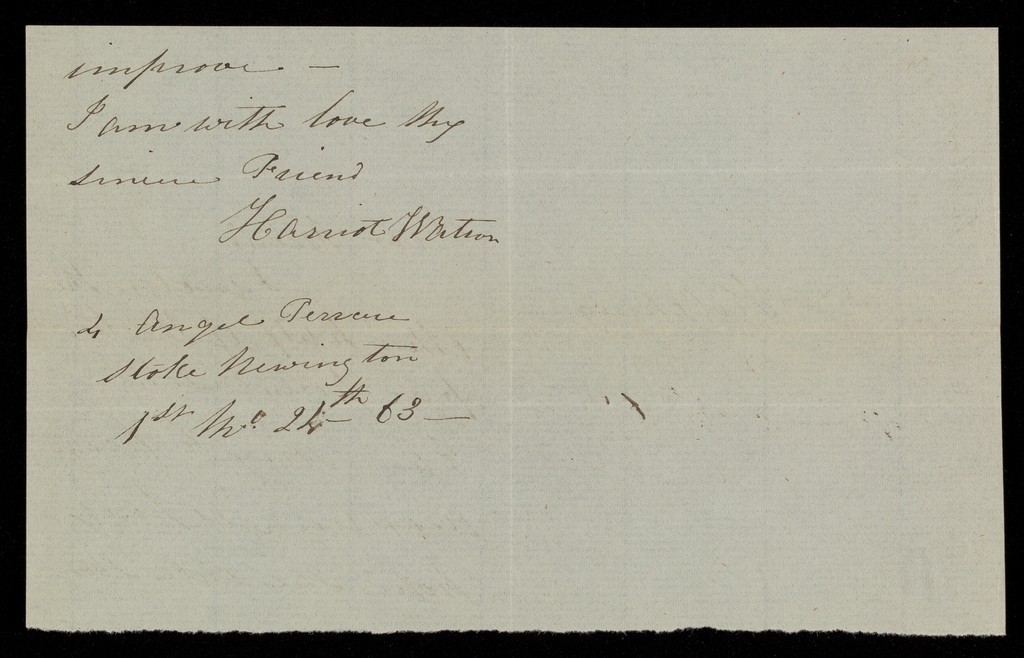 improve —
I am with love thy
sincere Friend
Harriot Watson
4 Angel Terrace
Stoke Newington
1st Mo. 24th 63 —